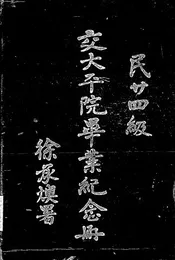 民廿四級
交大平院畢業紀念冊
徐承燠署